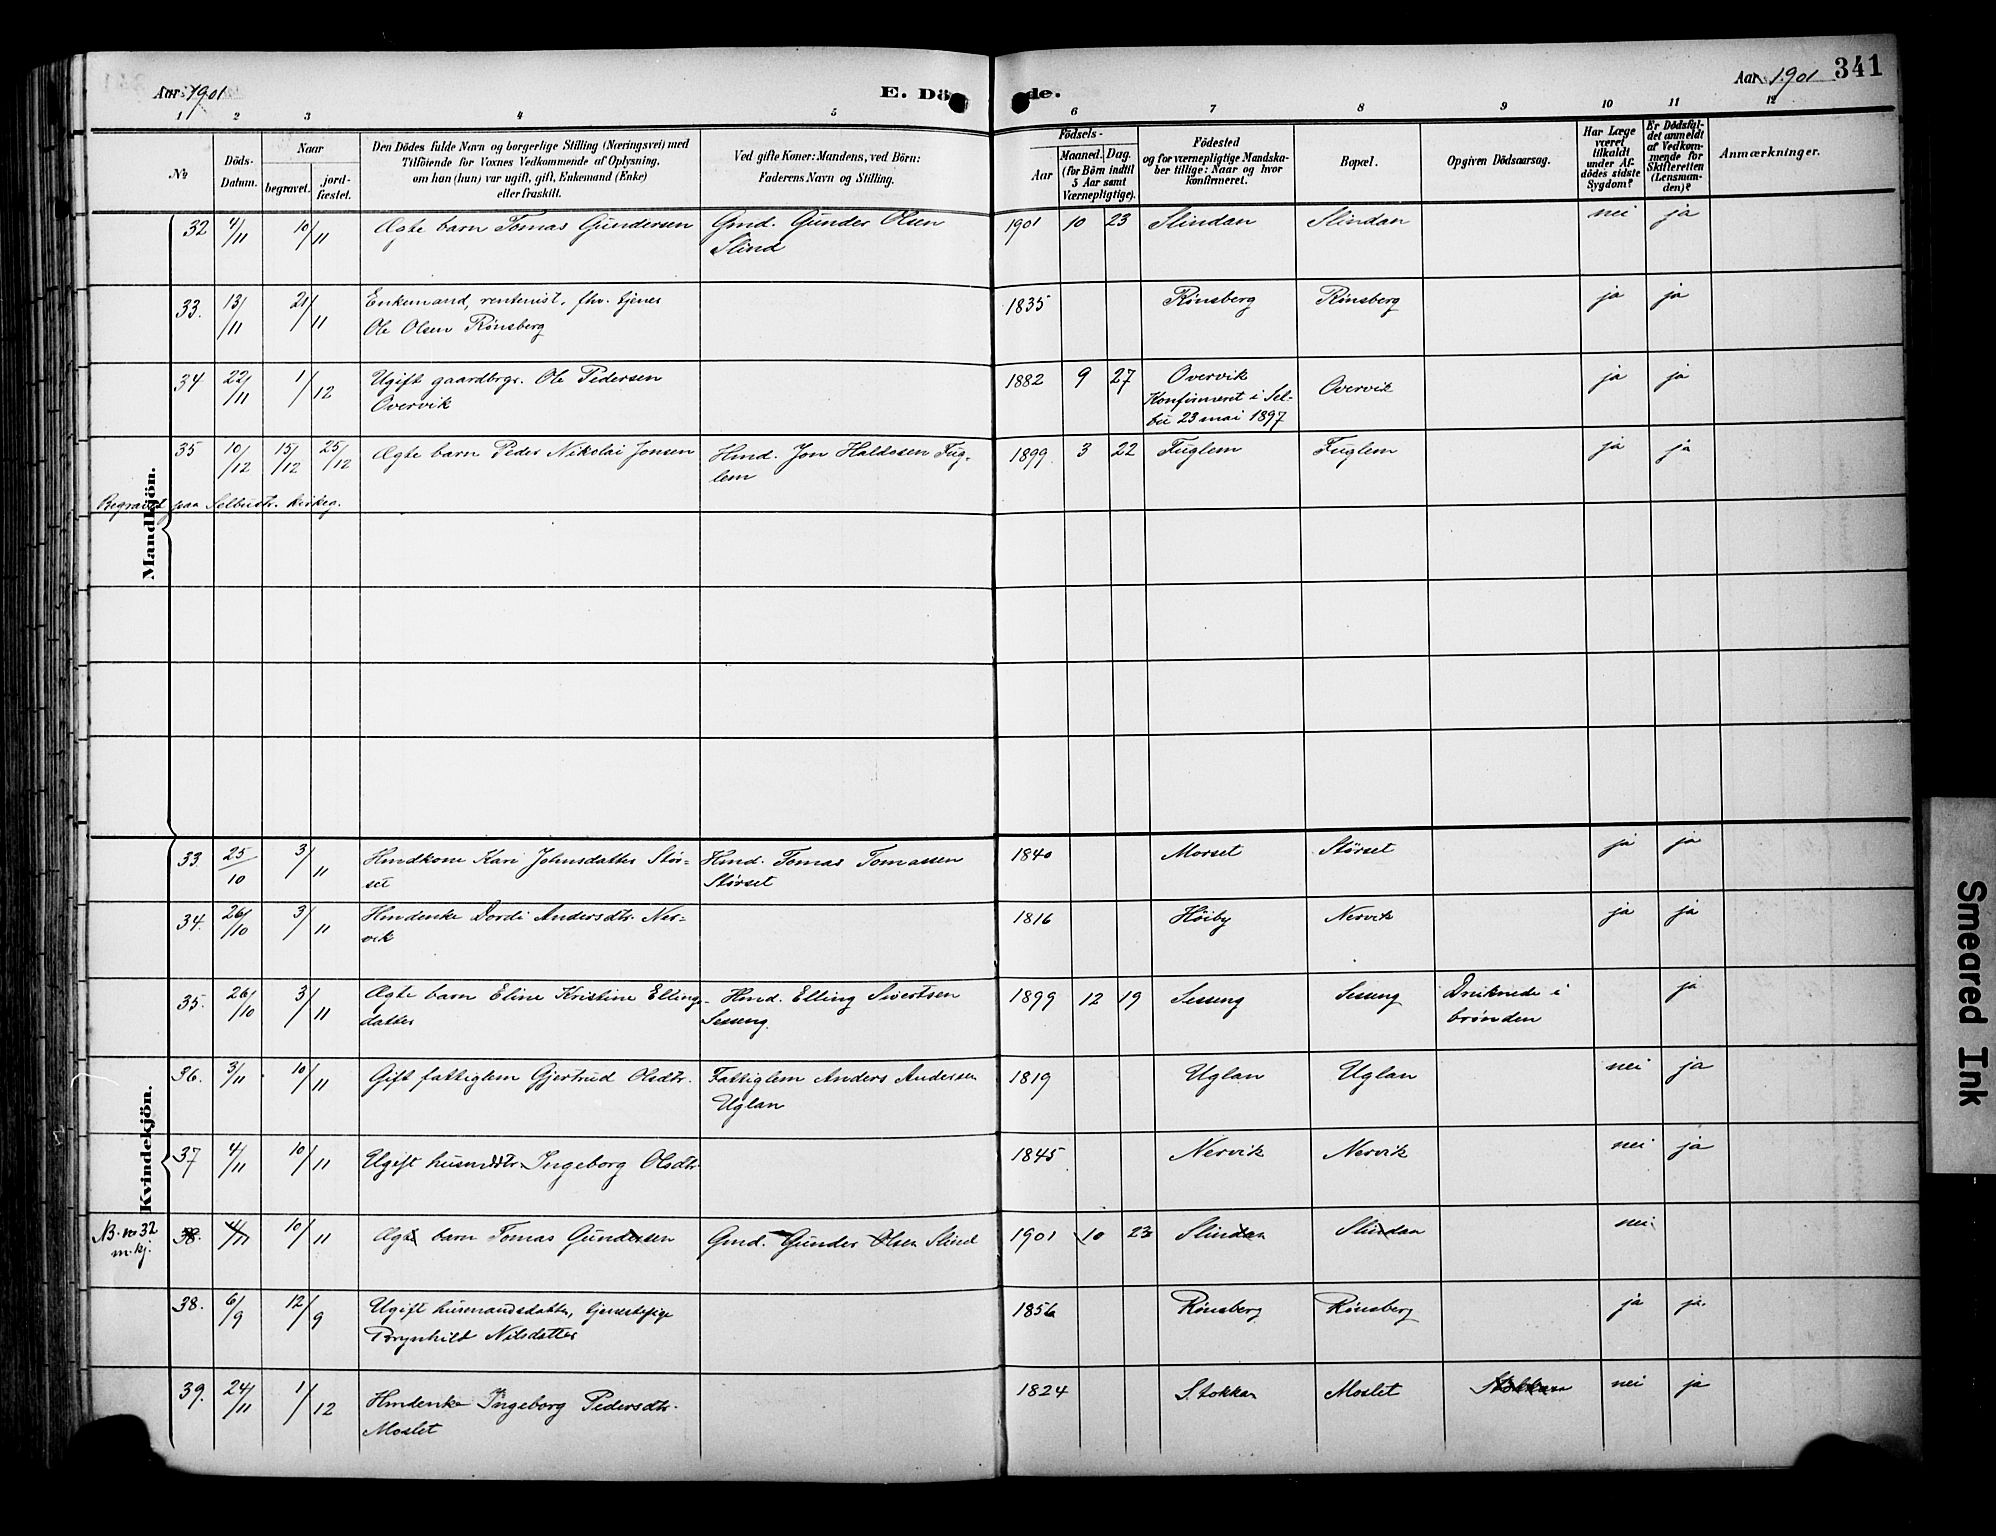 Aar 1901
E. Dö de.
Aar 1901
341
1 2 3 4 5 6 7 8 9 10 11 12
No
Döds-Datum.
Naar
begravet.
jord-fæstet.
Den Dödes fulde Navn og borgerlige Stilling (Næringsvei) med
Tilföiende for Voxnes Vedkommende af Oplysning,
om han (hun) var ugift, gift, Enkemand (Enke)
eller fraskilt.
Ved gifte Koner: Mandens, ved Börn:
Faderens Navn og Stilling.
Födsels-
Aar
Maaned. Dag.
(for Börn indtil
5 Aar samt
Værnepligtige).
Födested
og for værnepligtige Mandska-
ber tillige: Naar og hvor
konfirmeret.
Bopæl.
Opgiven Dödsaarsag.
Har Læge
været
tilkaldt
under Af-
dödes sidste
Sygdom?
Er Dödsfal-
det anmeldt
af Vedkom-
mende for
Skifteretten
(Lensman-
den)?
Anmærkninger.
Mandkjön.
32 4/11 10/11 Ægte barn Tomas Gundersen Gmd. Gunder Olsen 1901 10 23 Slindan Slindan nei ja
Slind
33. 13/11 21/11 Enkemand, rentenist, fhv. tjener 1835 Rönsberg Rönsberg ja ja
Ole Olsen Rönsberg
34 22/11 1/12 Ugift gaardbrgr. Ole Pedersen 1882 9 27 Overvik Overvik ja ja
Overvik Konfirmeret i Sel-
bu 23 mai 1897
35 10/12 15/12 25/12 Ægte barn Peder Nikolai Jonsen Hmd. Jon Haldosen Fug- 1899 3 22 Fuglem Fuglem ja ja
lem
Begravet paa Selbustr. kirkeg.
Kvindekjön.
33. 25/10 3/11 Hmdkone Kari Johnsdatter Stör- Hmd. Tomas Tomassen 1840 Morset Störset ja ja
set Störset
34. 26/10 3/11 Hmdenke Dordi Andersdtr. Ner- 1816 Höiby Nervik ja ja
vik
35. 26/10 3/11 Ægte barn Eline Kristine Ellings- Hmd. Elling Sivertsen 1899 12 19 Sesseng Sesseng Druknede i ja
datter Sesseng. brönden
36. 3/11 10/11 Gift fattiglem Gjertrud Olsdtr. Fattiglem Anders Andersen 1819 Uglan Uglan nei ja
Uglan
37 4/11 10/11 Ugift husmdtr. Ingeborg Olsdtr. 1845 Nervik Nervik nei ja
N3. no 32
m.kj.
38. 4/11 10/11 Ægte barn Tomas Gundersen Gmd. Gunder Olsen Slind 1901 10 23 Slindan Slindan nei
38. 6/9 12/9 Ugift husmandsdatter, tjenestepige 1856 Rönsberg Rönsberg ja ja.
Brynhild Nilsdatter
39. 24/11 1/12 Hmdenke Ingeborg Pedersdtr. 1824 Stokkan Moslet Stokkan nei ja
Moslet
Smeared Ink